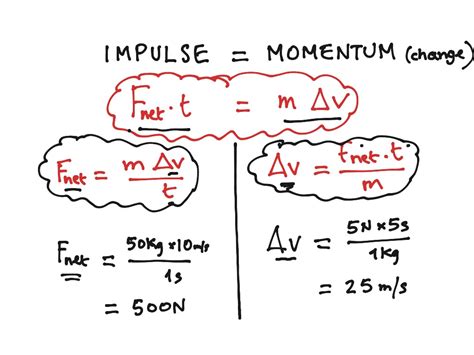 IMPULSE = MOMENTUM (change)
Fnet · t = m Δv
Fnet = m Δv / t
Δv = Fnet · t / m
Fnet = 50kg × 10 m/s / 1s
= 500N
Δv = 5N × 5s / 1kg
= 25 m/s